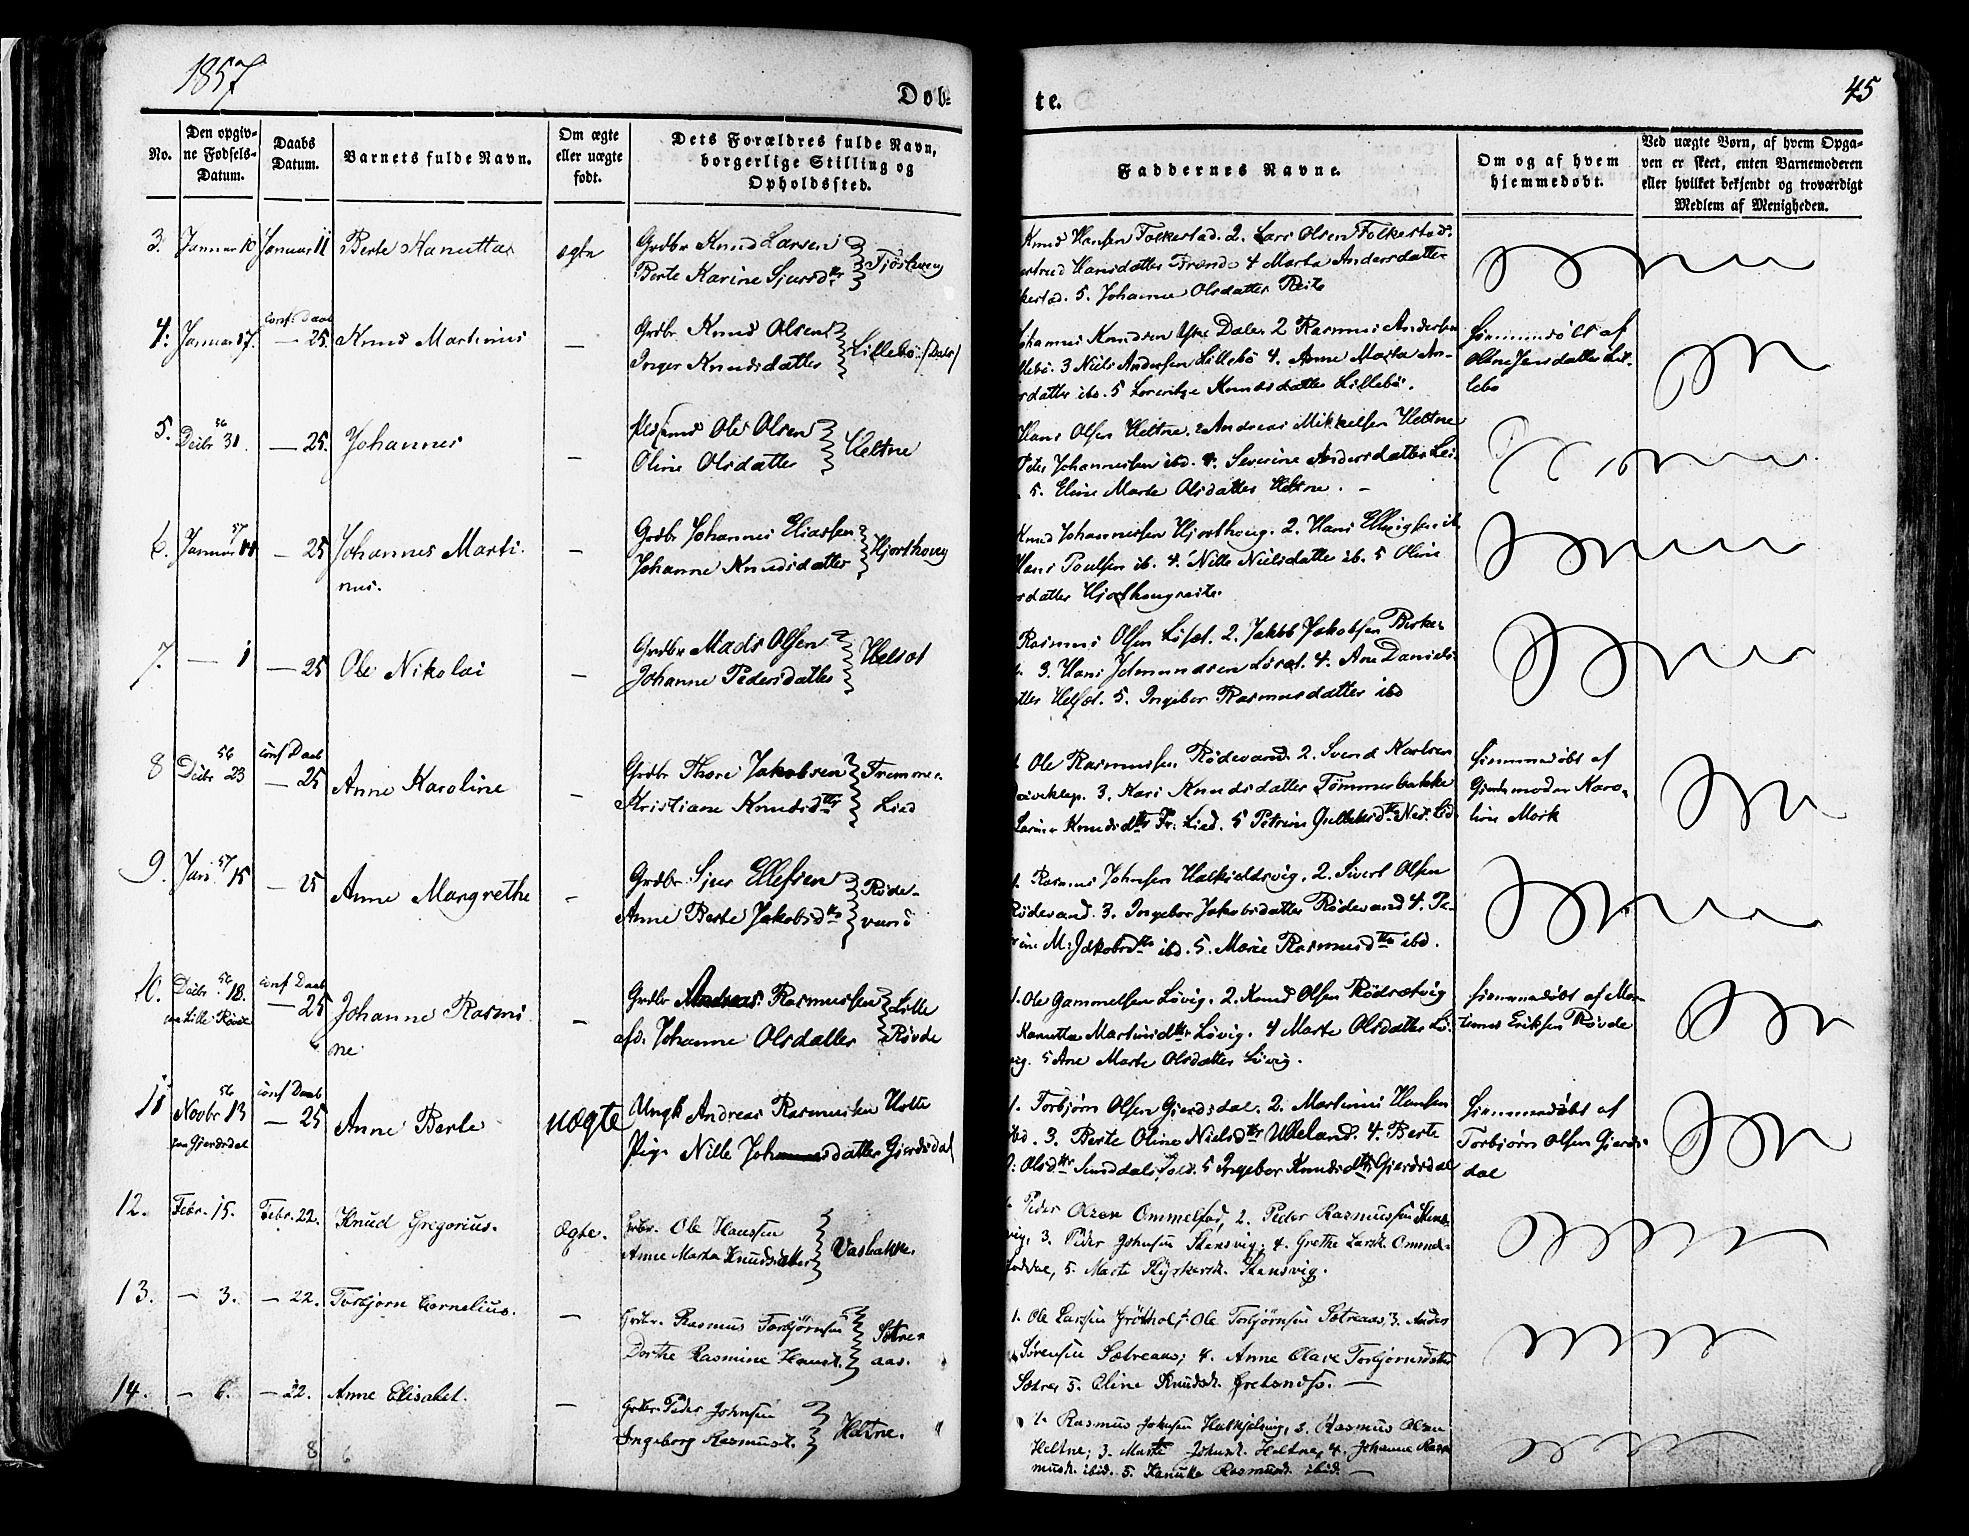 1857
Döb-
te.
45
No.
Den opgiv-
ne Fødsels-
Datum.
Daabs
Datum.
Barnets fulde Navn.
Om ægte
eller uægte
født.
Dets Forældres fulde Navn,
borgerlige Stilling og
Opholdssted.
Faddernes Navne.
Om og af hvem
hjemmedøbt.
Ved uægte Børn, af hvem Opga-
ven er skeet, enten Barnemoderen
eller hvilket bekjendt og troværdigt
Medlem af Menigheden.
3. Januar 10 Januar 11 Berte Kanutta ægte
Grdbr Knud Larsen
Berte Karine Sjursdtr Tjöstveug
Knud Hansen Folkestad. 2. Lars Olsen Folkestad.
Hansdatter Brænde 4 Marta Andersdatter
5. Johanne Olsdatter Reite
4. Januar 7. conf. Daab — 25. Knud Martinus —
Grdbr Knud Olsen
Inger Knudsdatter Lillebö (Dale)
Johannes Knudsen Dale. 2 Rasmus Andersen
3 Niels Andersen Lillebö 4. Anne Marta An-
datter ibd. 5 Knudsdatter Lillebö.
Hjemmedöbt af
Oline Jensdatter Lil-
lebö
5. Decbr 56 31 — 25. Johannes —
Ole Olsen
Oline Olsdatter Heltne
Hans Olsen Heltne. 2 Andreas Mikkelsen Heltne
Peter Johannessen ibd. 4. Severine Andersdatter
5. Eline Marte Olsdatter Heltne. —
6. Januar 57 — 25 Johannes Marti-
nus. —
Grdbr Johannes Eliassen
Johanne Knudsdatter Hjorthoug
Knud Johannessen Hjorthoug. 2. Hans
Hans Poulsen ib. 4. Nille Nielsdatter ib. 5 Oline
datter Hjorthougreite
7. — 1 — 25 Ole Nikolai —
Grdbr Mads Olsen
Johanne Pedersdatter Helset
Rasmus Olsen Löset. 2. Jakob Jakobsen
3. Hans Löset. 4. Ane Daniels-
datter Helset. 5. Ingebor Rasmusdatter ibd
8 Decbr 56 23 conf Daab — 25 Anne Karoline —
Grdbr Thore Jakobsen
Kristiane Knudsdtr Fremme-
Lied
1 Ole Rasmussen Rödevand. 2. Svend Karlsen
3. Kari Knudsdatter Tömmerbakke
Knudsdtr Fr: Lied. 5 Petrine
Hjemmedöbt af
Gjordemoder Karo-
line Mork
9. Jan. 57 15 — 25 Anne Margrethe —
Grdbr Sjur Ellefsen
Anne Berte Jakobsdtr Röde-
vand
1. Rasmus Johnsen Halkjelsvig. 2. Sivert Olsen
Rödevand. 3. Ingebor Jakobsdatter Rödevand 4. Pe-
rine M: Jakobsdtr ibd. 5. Marie Rasmusdtr ibd.
10. Decbr 56 18. conf Daab — 25 Johanne Rasmi-
paa Lille Rövde
ne —
Grdbr Andreas Rasmussen
afd. Johanne Olsdatter Lille
Rövde
1. Ole Gammelsen Lövig. 2. Knud Olsen Rödsætvig
Kanutta Martinusdtr Lövig. 4 Marte Olsdatter Lö-
vig. 5 Ane Marte Olsdatter Lövig.
Hjemmedöbt af Mar-
tinus Eriksen Rövde
11 Novbr 56 13 conf Daab — 25 Anne Berte uægte
paa Gjerdsdal
Ungk Andreas Rasmussen
Pige Nille Johannesdatter Gjerdsdal
1. Torbjørn Olsen Gjerdsdal. 2. Martinus Hansen
ibd. 3. Berte Oline Nielsdtr 4. Berte
Olsdtr 5 Ingebor Knudsdtr Gjerdsdal
Hjemmedöbt af
Torbjørn Olsen Gjerds-
dal
12. Febr. 15. Febr. 22. Knud Gregorius. Ægte.
Grbr. Ole Hanssen
Anne Marta Knudsdatter Vasbakke.
1. Peder Olsen Ommelfod, 2. Peder Rasmussen Stens-
vig, 3. Peder Johnsen Stensvig; 4. Grethe Larsd. Ommel-
5. Marte Stensvig.
13. — 3. — 22. Torbjørn Cornelius. —
Grbr. Rasmus Torbjörnsen
Dorthe Rasmine Hansd. Sætre-
aas.
1. Ole Larsen Ole Torbjörnsen Sætreaas, 3. Anders
Sörensen Sætreaas; 4. Anne Olave Torbjörnsdatter
Sætre, 5. Oline Knudsd. —
14. — 6. — 22. Anne Elisabet. —
Grbr. Peder Johnsen
Ingeborg Rasmusd. Heltne.
1. Rasmus Johnsen Halkjelsvig, 2. Rasmus Olsen
Heltne; 3. Marte Johnsd. Heltne, 4. Johanne Ras-
musd. ibid. 5. Kanutte Rasmusd. ibid. —
8 6